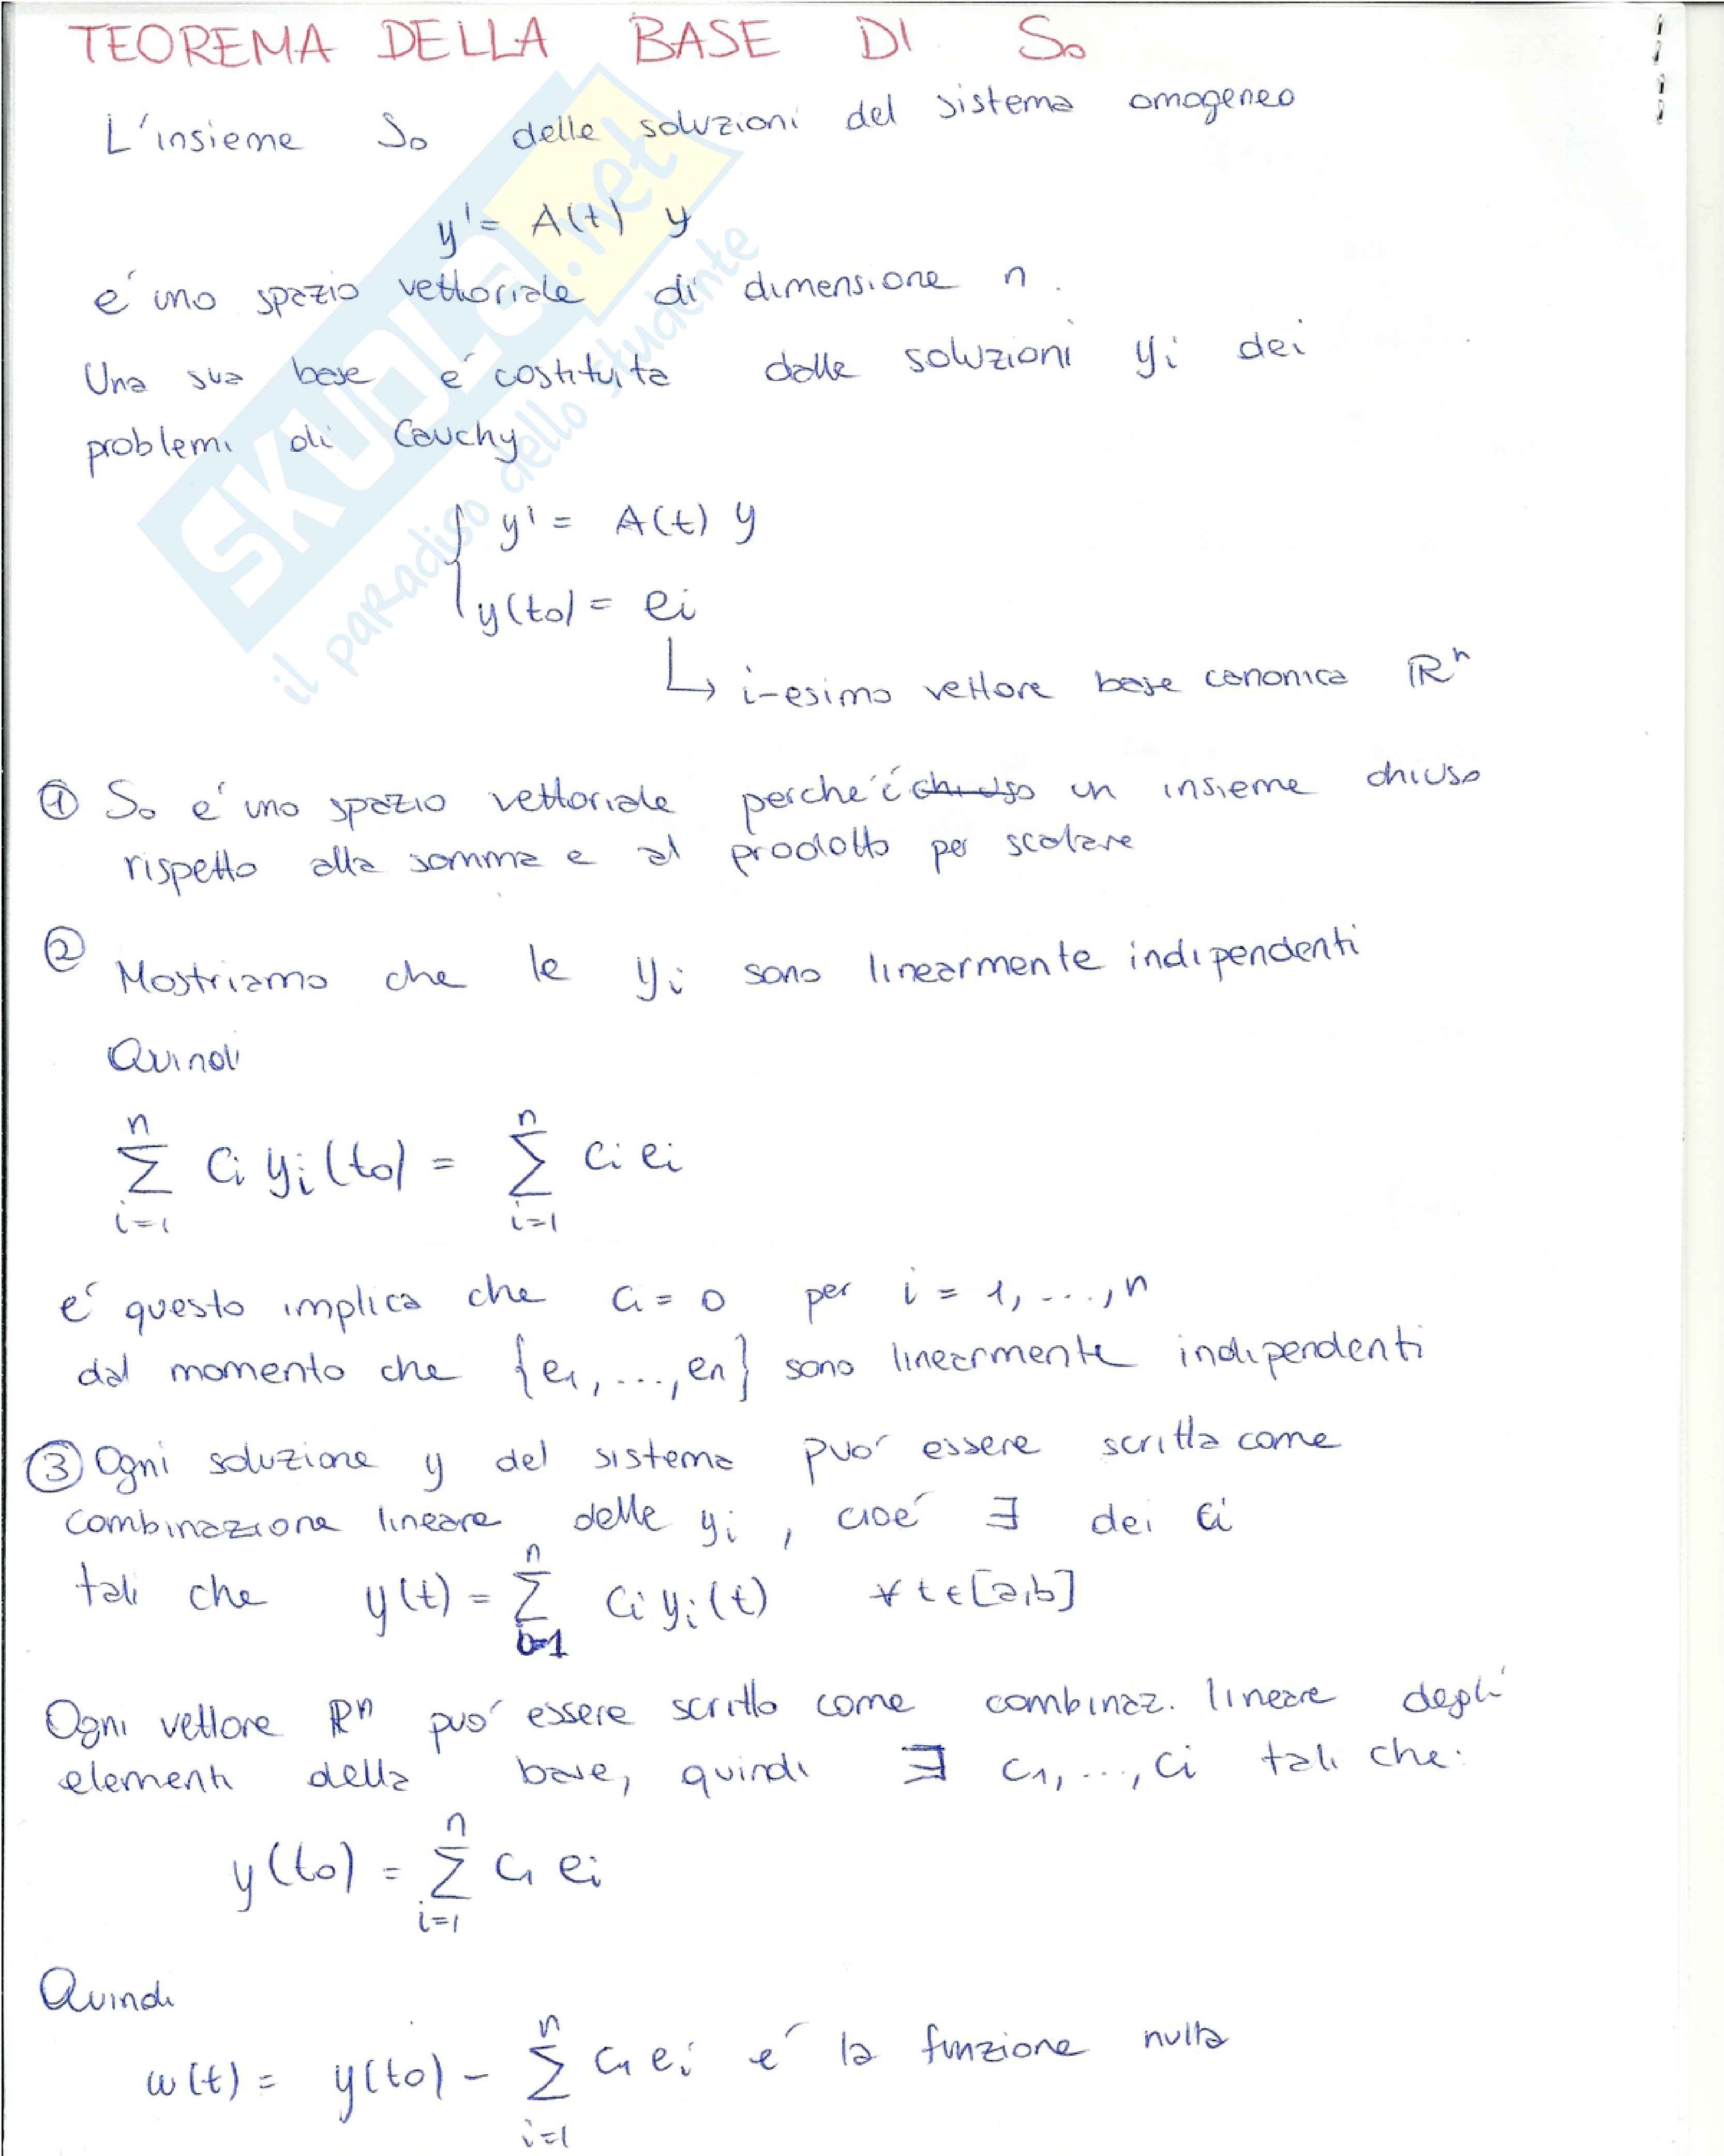 TEOREMA DELLA BASE DI S₀
L'insieme S₀ delle soluzioni del sistema omogeneo
y' = A(t) y
e' uno spazio vettoriale di dimensione n.
Una sua base e' costituita dalle soluzioni yᵢ dei
problemi di Cauchy
{ y' = A(t) y
y(t₀) = eᵢ
↳ i-esimo vettore base canonica ℝⁿ
① S₀ e' uno spazio vettoriale perche' é chiuso un insieme chiuso
rispetto alla somma e al prodotto per scalare
② Mostriamo che le yᵢ sono linearmente indipendenti
Quindi
n n
∑ cᵢ yᵢ(t₀) = ∑ cᵢ eᵢ
i=1 i=1
e' questo implica che cᵢ = 0 per i = 1, ..., n
dal momento che {e₁, ..., eₙ} sono linearmente indipendenti
③ Ogni soluzione y del sistema puo' essere scritta come
combinazione lineare delle yᵢ, cioe' ∃ dei cᵢ
n
tali che y(t) = ∑ cᵢ yᵢ(t) ∀ t ∈ [a,b]
i=1
Ogni vettore ℝⁿ puo' essere scritto come combinaz. lineare degli
elementi della base, quindi ∃ c₁, ..., cᵢ tali che:
n
y(t₀) = ∑ cᵢ eᵢ
i=1
Quindi
n
w(t) = y(t₀) - ∑ cᵢ eᵢ e' la funzione nulla
i=1
SKUOLA.net
il paradiso dello studente